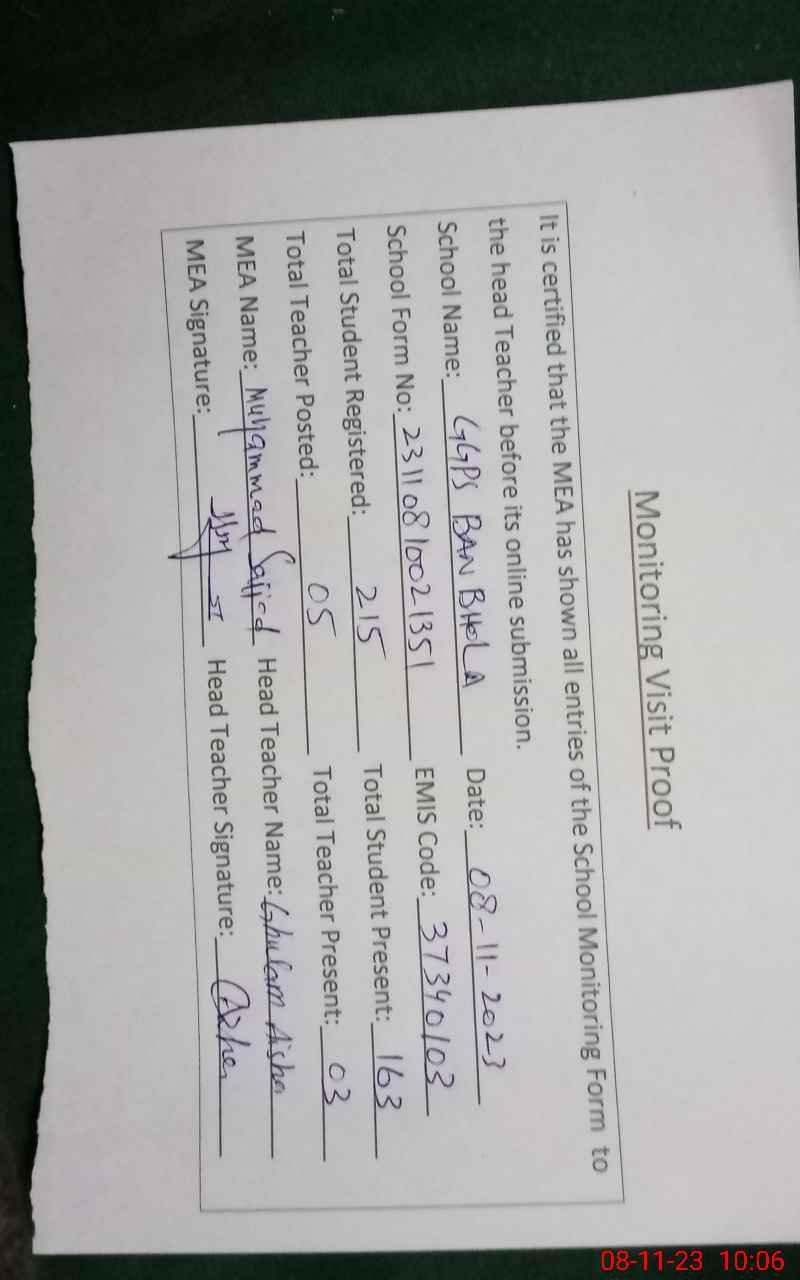 Monitoring Visit Proof
It is certified that the MEA has shown all entries of the School Monitoring Form to
the head Teacher before its online submission.
School Name: GGPS BAN BHOLA Date: 08-11-2023
School Form No: 23110810021351 EMIS Code: 37340103
Total Student Registered: 215 Total Student Present: 163
Total Teacher Posted: 05 Total Teacher Present: 03
MEA Name: Muhammad Sajjad Head Teacher Name: Ghulam Aisha
MEA Signature: Head Teacher Signature:
08-11-23 10:06